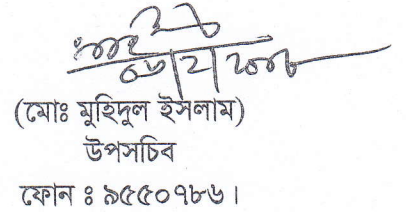 (মোঃ মুহিদুল ইসলাম)
উপসচিব
ফোন ঃ ৯৫৫০৭৮৬।